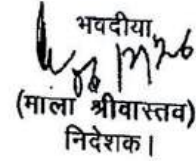 भवदीया,
(माला श्रीवास्तव)
निदेशक।